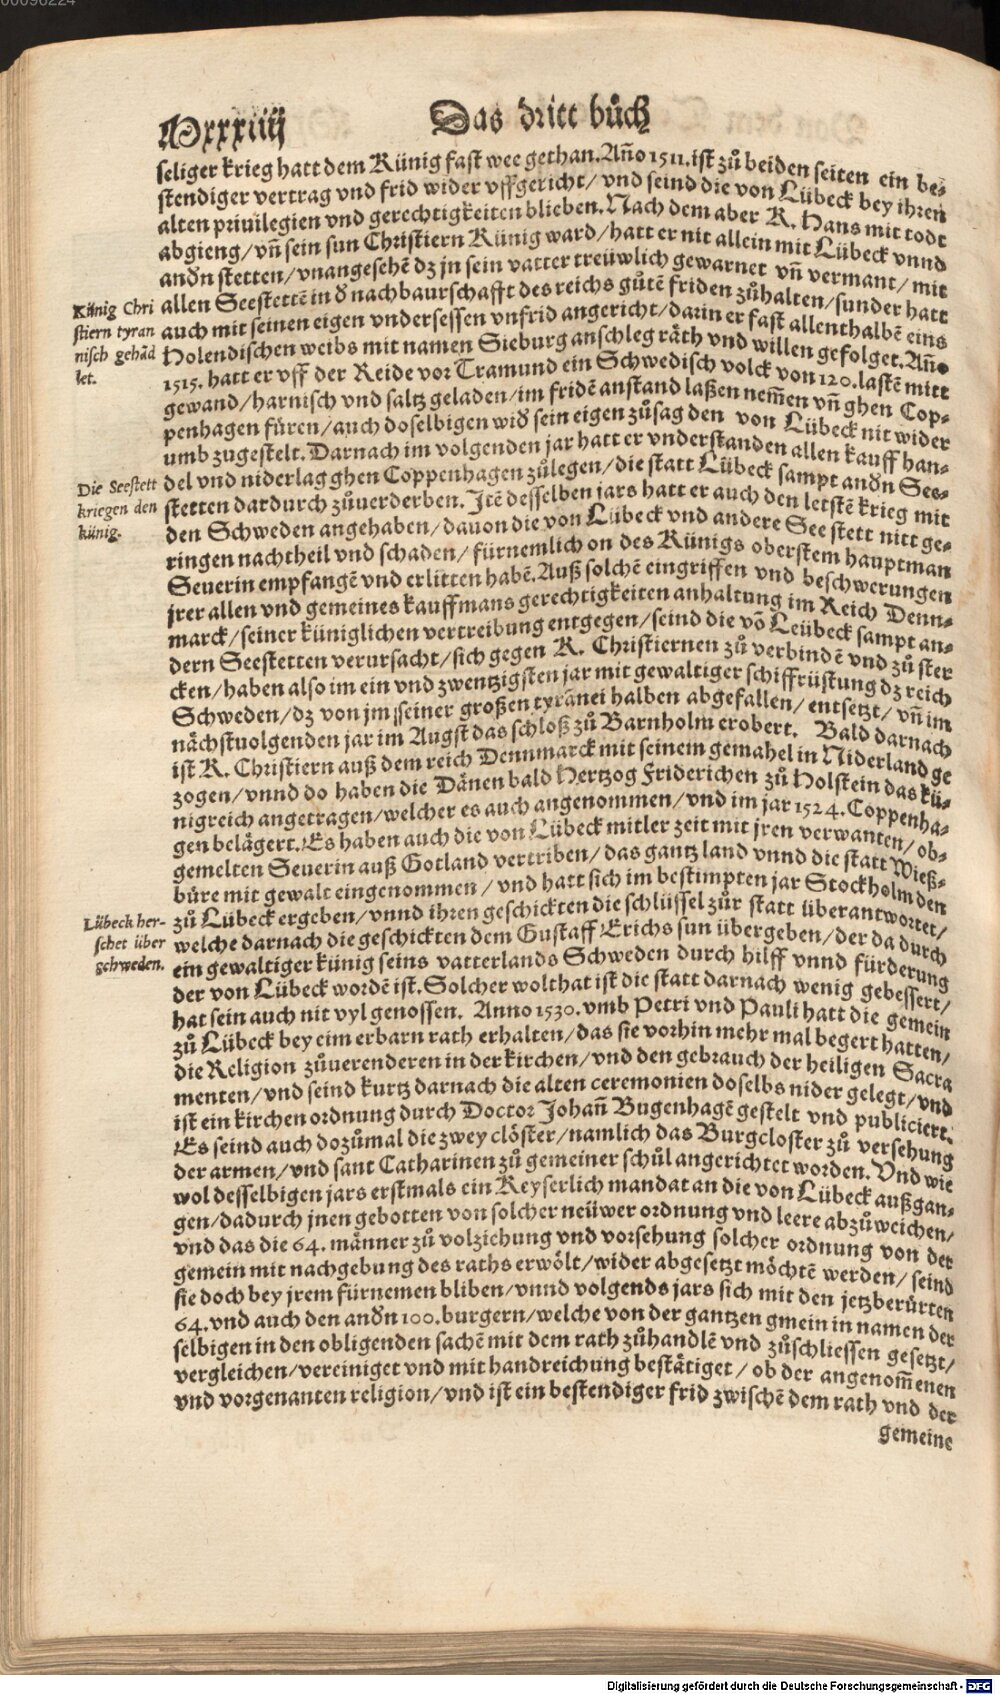 00096224
Mxxxiiij
Das dritt bůch
seliger krieg hatt dem Künig fast wee gethan. Año 1511. ist zů beiden seiten ein be-
stendiger vertrag vnd frid wider vffgericht/ vnd seind die von Lübeck bey ihren
alten priuilegien vnd gerechtigkeiten blieben. Nach dem aber K. Hans mit todt
abgieng/ vñ sein sun Christiern Künig ward/ hatt er nit allein mit Lübeck vnnd
andn stetten/ vnangesehẽ dz jn sein vatter treüwlich gewarnet vñ vermant/ mit
allen Seestettẽ in d nachbaurschafft des reichs gůtẽ friden zůhalten/ sunder hatt
auch mit seinen eigen vndersessen vnfrid angericht/ darin er fast allenthalbẽ eins
Holendischen weibs mit namen Sieburg anschleg räth vnd willen gefolget. Año
1515. hatt er vff der Reide vor Tramund ein Schwedisch volck von 120. lastẽ mitt
gewand/ harnisch vnd saltz geladen/ im fridẽ anstand laßen nem̃en vñ ghen Cop-
penhagen füren/ auch doselbigen wid sein eigen zůsag den von Lübeck nit wider
umb zugestelt. Darnach im volgenden jar hatt er vnderstanden allen kauff han-
del vnd niderlag ghen Coppenhagen zůlegen/ die statt Lübeck sampt andn See-
stetten dardurch zůuerderben. Jtẽ desselben jars hatt er auch den letstẽ krieg mit
den Schweden angehaben/ dauon die von Lübeck vnd andere See stett nitt ge-
ringen nachtheil vnd schaden/ fürnemlich on des Künigs oberstem hauptman
Seuerin empfangẽ vnd erlitten habẽ. Auß solchẽ eingriffen vnd beschwerungen
jrer allen vnd gemeines kauffmans gerechtigkeiten anhaltung im Reich Denn-
marck/ seiner küniglichen vertreibung entgegen/ seind die võ Leübeck sampt an-
dern Seestetten verursacht/ sich gegen K. Christiernen zů verbindẽ vnd zů ster
cken/ haben also im ein vnd zwentzigsten jar mit gewaltiger schiffrüstung dz reich
Schweden/ dz von jm seiner großen tyrãnei halben abgefallen/ entsetzt/ vñ im
nächstuolgenden jar im Augst das schloß zů Barnholm erobert. Bald darnach
ist K. Christiern auß dem reich Dennmarck mit seinem gemahel in Niderland ge
zogen/ vnnd do haben die Dänen bald Hertzog Friderichen zů Holstein das kü-
nigreich angetragen/ welcher es auch angenommen/ vnd im jar 1524. Coppenha-
gen belägert. Es haben auch die von Lübeck mitler zeit mit jren verwanten/ ob-
gemelten Seuerin auß Gotland vertriben/ das gantz land vnnd die statt Wieß-
büre mit gewalt eingenommen/ vnd hatt sich im bestimpten jar Stockholm den
zů Lübeck ergeben/ vnnd ihren geschickten die schlüssel zůr statt überantwortet/
welche darnach die geschickten dem Gustaff Erichs sun übergeben/ der da durch
ein gewaltiger künig seins vatterlands Schweden durch hilff vnnd fürderung
der von Lübeck wordẽ ist. Solcher wolthat ist die statt darnach wenig gebessert/
hat sein auch nit vyl genossen. Anno 1530. vmb Petri vnd Pauli hatt die gemein
zů Lübeck bey eim erbarn rath erhalten/ das sie vorhin mehr mal begert hatten/
die Religion zůuerenderen in der kirchen/ vnd den gebrauch der heiligen Sacra
menten/ vnd seind kurtz darnach die alten ceremonien doselbs nider gelegt/ vnd
ist ein kirchen ordnung durch Doctor Johañ Bugenhagẽ gestelt vnd publiciert.
Es seind auch dozůmal die zwey clöster/ namlich das Burgcloster zů versehung
der armen/ vnd sant Catharinen zů gemeiner schůl angerichtet worden. Vnd wie
wol desselbigen jars erstmals ein Keyserlich mandat an die von Lübeck außgan-
gen/ dadurch jnen gebotten von solcher neüwer ordnung vnd leere abzůweichen/
vnd das die 64. männer zů volziehung vnd vorsehung solcher ordnung von der
gemein mit nachgebung des raths erwölt/ wider abgesetzt möchtẽ werden/ seind
sie doch bey jrem fürnemen bliben/ vnnd volgends jars sich mit den jetzberürten
64. vnd auch den andn 100. burgern/ welche von der gantzen gmein in namen der
selbigen in den obligenden sachẽ mit dem rath zůhandlẽ vnd zůschliessen gesetzt/
vergleichen/ vereiniget vnd mit handreichung bestätiget/ ob der angenom̃enen
vnd vorgenanten religion/ vnd ist ein bestendiger frid zwischẽ dem rath vnd der
gemeine
Künig Chri
stiern tyran
nisch gehãd
let.
Die Seestett
kriegen den
künig.
Lübeck her-
schet über
schweden.
Digitalisierung gefördert durch die Deutsche Forschungsgemeinschaft - DFG